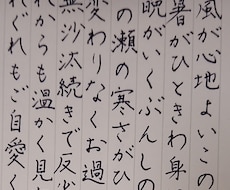 風が心地よいこの
暑がひときわ身
晩がいくぶんしの
の瀬の寒さがひ
変わりなくお過
無沙汰続きで反
れからも温かく見
れぐれもご自愛く